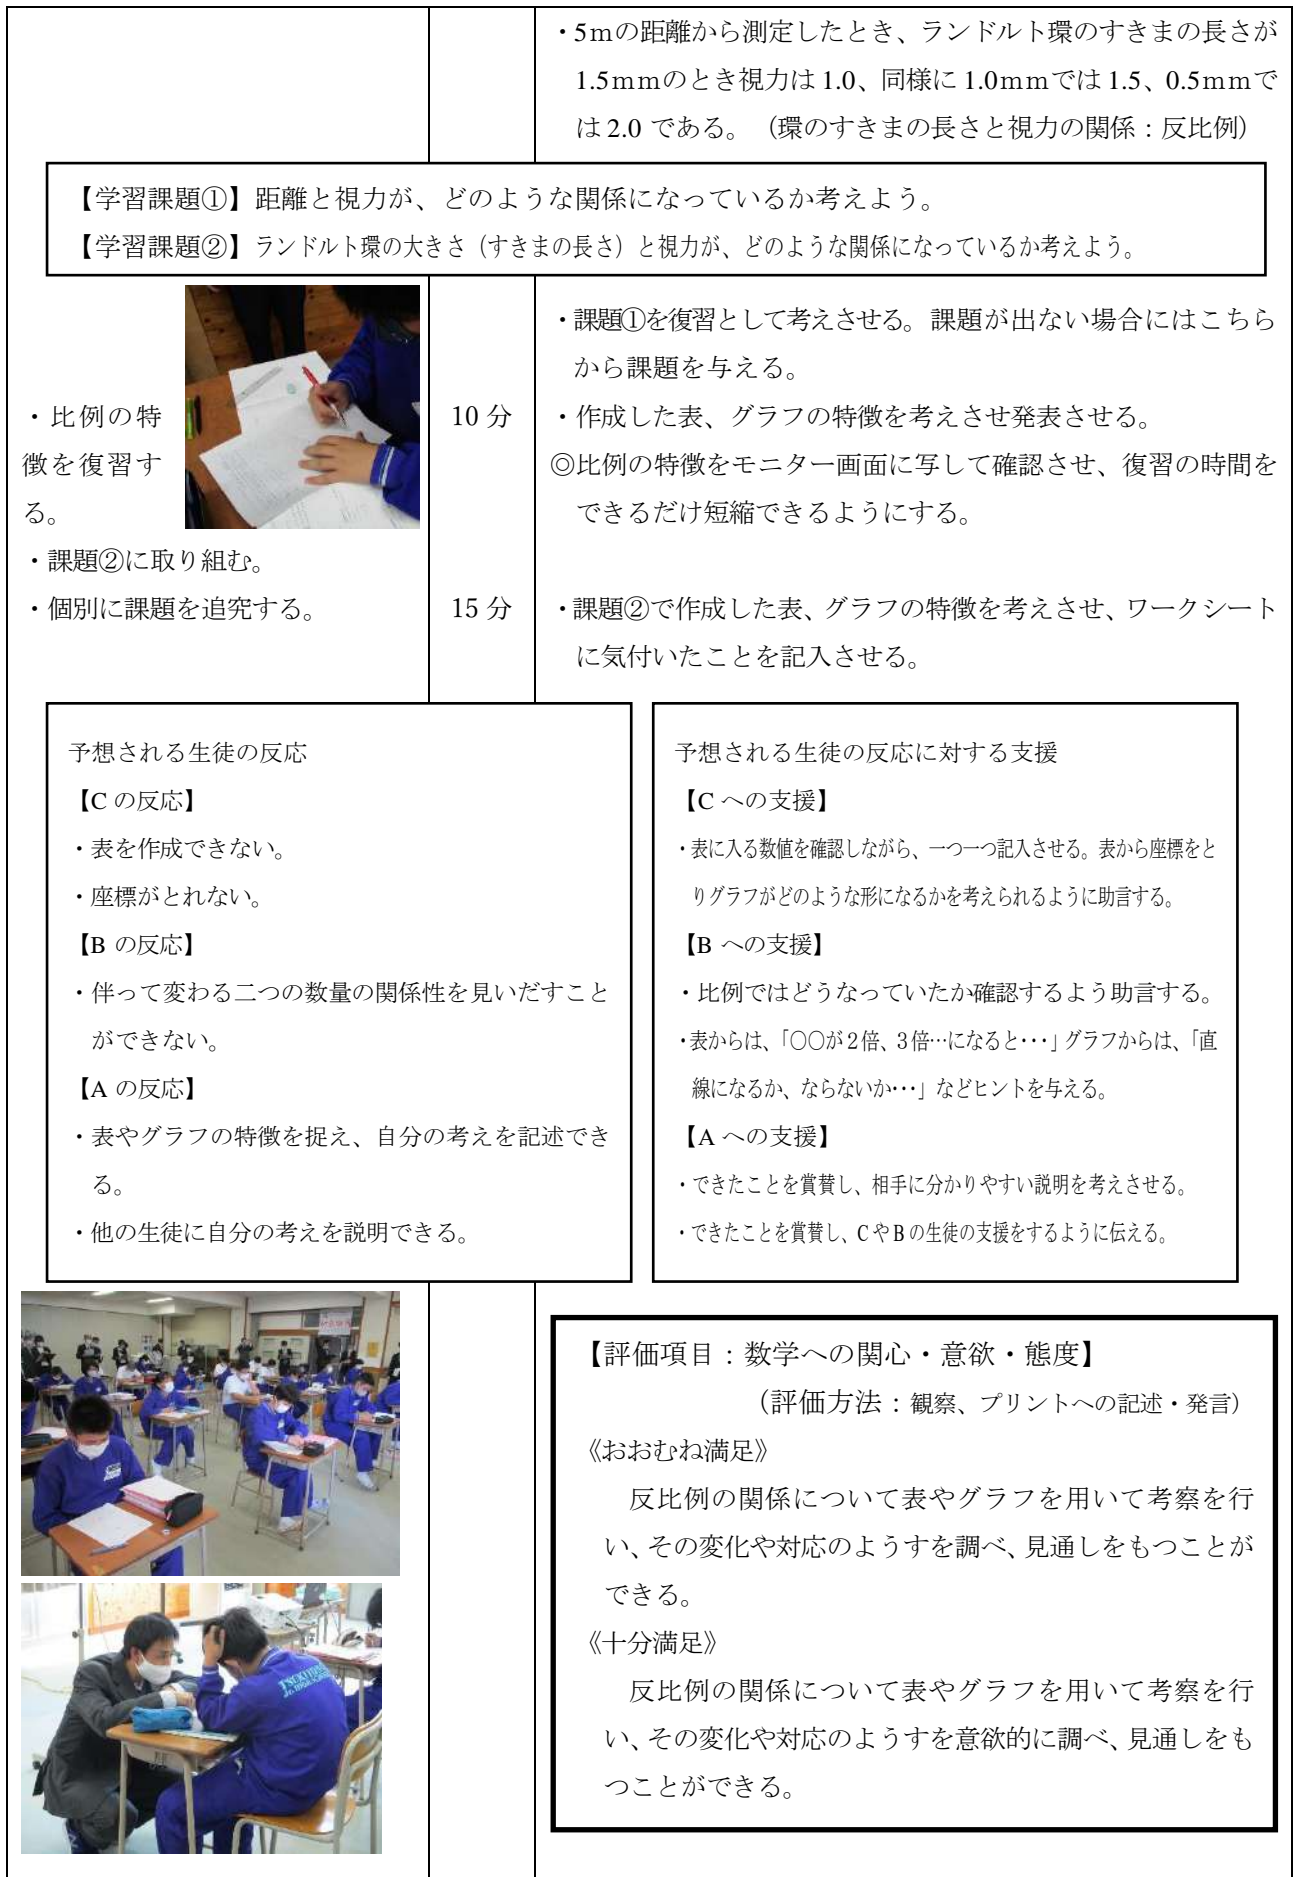 ・5ｍの距離から測定したとき、ランドルト環のすきまの長さが
1.5ｍｍのとき視力は 1.0、同様に 1.0ｍｍでは 1.5、0.5ｍｍで
は 2.0 である。（環のすきまの長さと視力の関係：反比例）
【学習課題①】距離と視力が、どのような関係になっているか考えよう。
【学習課題②】ランドルト環の大きさ（すきまの長さ）と視力が、どのような関係になっているか考えよう。
・課題①を復習として考えさせる。課題が出ない場合にはこちら
から課題を与える。
・比例の特
徴を復習す
る。
10 分
・作成した表、グラフの特徴を考えさせ発表させる。
◎比例の特徴をモニター画面に写して確認させ、復習の時間を
できるだけ短縮できるようにする。
・課題②に取り組む。
・個別に課題を追究する。
15 分
・課題②で作成した表、グラフの特徴を考えさせ、ワークシート
に気付いたことを記入させる。
予想される生徒の反応
【C の反応】
・表を作成できない。
・座標がとれない。
【B の反応】
・伴って変わる二つの数量の関係性を見いだすこと
ができない。
【A の反応】
・表やグラフの特徴を捉え、自分の考えを記述でき
る。
・他の生徒に自分の考えを説明できる。
予想される生徒の反応に対する支援
【C への支援】
・表に入る数値を確認しながら、一つ一つ記入させる。表から座標をと
りグラフがどのような形になるかを考えられるように助言する。
【B への支援】
・比例ではどうなっていたか確認するよう助言する。
・表からは、「〇〇が２倍、３倍…になると･･･」グラフからは、「直
線になるか、ならないか･･･」などヒントを与える。
【A への支援】
・できたことを賞賛し、相手に分かりやすい説明を考えさせる。
・できたことを賞賛し、C や B の生徒の支援をするように伝える。
【評価項目：数学への関心・意欲・態度】
（評価方法：観察、プリントへの記述・発言）
《おおむね満足》
反比例の関係について表やグラフを用いて考察を行
い、その変化や対応のようすを調べ、見通しをもつことが
できる。
《十分満足》
反比例の関係について表やグラフを用いて考察を行
い、その変化や対応のようすを意欲的に調べ、見通しをも
つことができる。